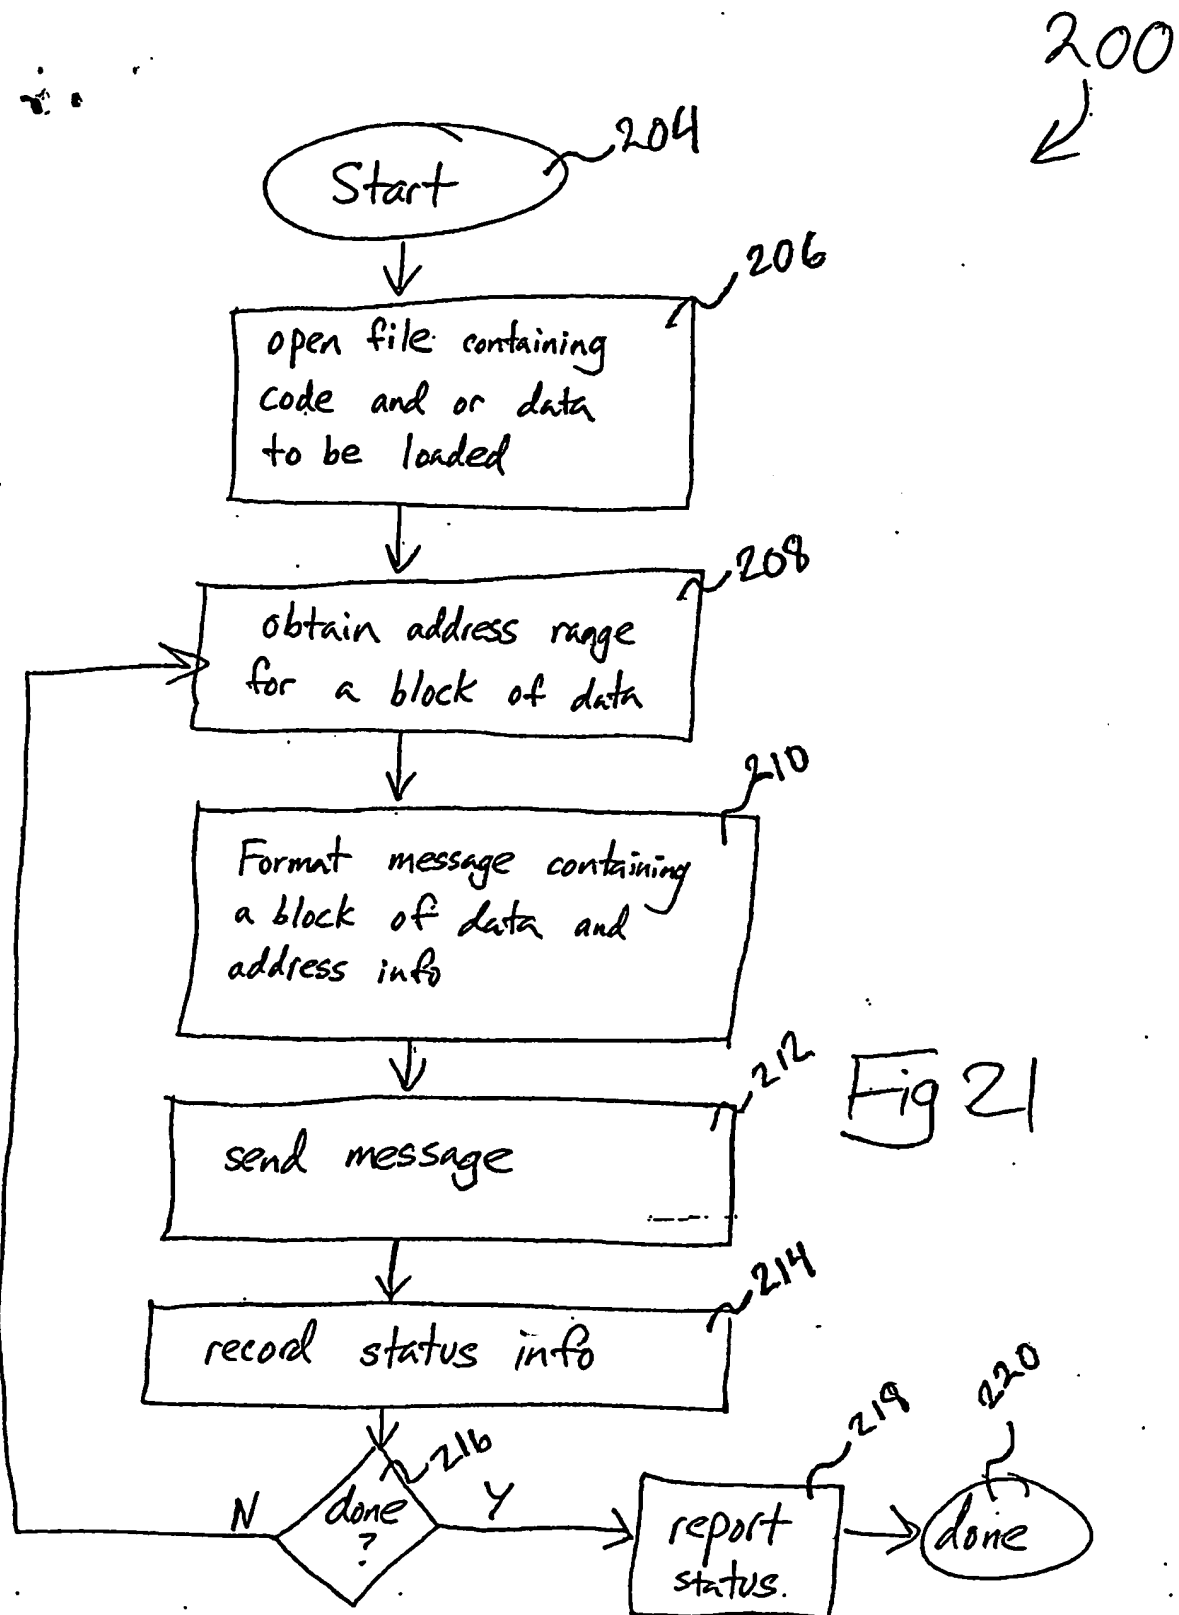 200
204
Start
206
open file containing
code and or data
to be loaded
208
obtain address range
for a block of data
210
Format message containing
a block of data and
address info
212
Fig 21
send message
214
record status info
216
N
done
?
Y
218
report
status.
220
done